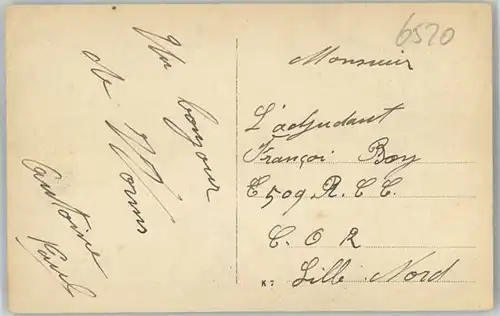 Un bonjour
de Worms
Antoine
Paul
6520
Monsieur
L'adjudant
Françoi Boy
509 R. C. C.
C. O R
Lille Nord
K 7